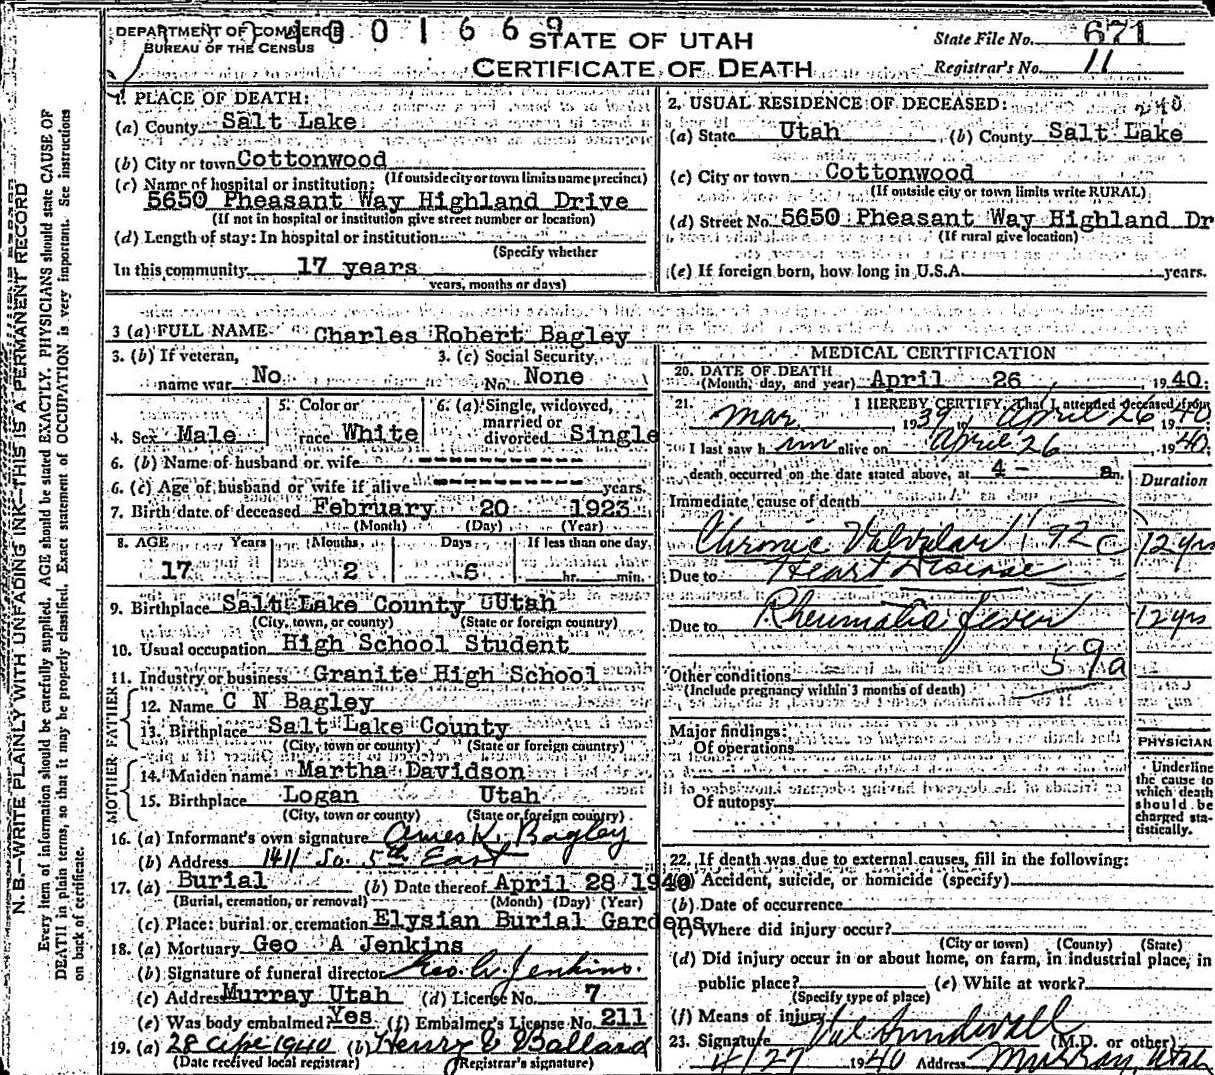 DEPARTMENT OF COMMERCE
BUREAU OF THE CENSUS
1001669
STATE OF UTAH
CERTIFICATE OF DEATH
State File No. 671
Registrar's No. 11
1. PLACE OF DEATH:
(a) County Salt Lake
(b) City or town Cottonwood
(If outside city or town limits name precinct)
(c) Name of hospital or institution:
5650 Pheasant Way Highland Drive
(If not in hospital or institution give street number or location)
(d) Length of stay: In hospital or institution
(Specify whether
In this community 17 years
years, months or days)
2. USUAL RESIDENCE OF DECEASED:
240
(a) State Utah (b) County Salt Lake
(c) City or town Cottonwood
(If outside city or town limits write RURAL)
(d) Street No. 5650 Pheasant Way Highland Dr
(If rural give location)
(e) If foreign born, how long in U.S.A. years.
3 (a) FULL NAME Charles Robert Bagley
3. (b) If veteran,
name war No
3. (c) Social Security
No. None
4. Sex Male
5. Color or
race White
6. (a) Single, widowed,
married or
divorced Single
6. (b) Name of husband or wife
6. (c) Age of husband or wife if alive years.
7. Birth date of deceased February 20 1923
(Month) (Day) (Year)
8. AGE Years Months Days If less than one day
17 2 6 hr. min.
9. Birthplace Salt Lake County UUtah
(City, town, or county) (State or foreign country)
10. Usual occupation High School Student
11. Industry or business Granite High School
FATHER
12. Name C N Bagley
13. Birthplace Salt Lake County
(City, town or county) (State or foreign country)
MOTHER
14. Maiden name Martha Davidson
15. Birthplace Logan Utah
(City, town or county) (State or foreign country)
16. (a) Informant's own signature Ames K. Bagley
(b) Address 1411 So. 5th East
17. (a) Burial (b) Date thereof April 28 1940
(Burial, cremation, or removal) (Month) (Day) (Year)
(c) Place: burial or cremation Elysian Burial Gardens
18. (a) Mortuary Geo A Jenkins
(b) Signature of funeral director Geo. A. Jenkins.
(c) Address Murray Utah (d) License No. 7
(e) Was body embalmed? Yes (f) Embalmer's License No. 211
19. (a) 28 Apr 1940 (b) Henry C Ballard
(Date received local registrar) (Registrar's signature)
MEDICAL CERTIFICATION
20. DATE OF DEATH
(Month, day, and year) April 26, 1940.
21. I HEREBY CERTIFY, That I attended deceased from
Mar, 1939 to April 26 1940
I last saw him alive on April 26, 1940.
death occurred on the date stated above, at 4 - a. m.
Duration
Immediate cause of death
Chronic Valvular 92c 12 yrs
Due to Heart Disease
Due to Rheumatic fever 12 yrs
59a
Other conditions
(Include pregnancy within 3 months of death)
Major findings:
Of operations
Of autopsy
PHYSICIAN
Underline
the cause to
which death
should be
charged sta-
tistically.
22. If death was due to external causes, fill in the following:
(a) Accident, suicide, or homicide (specify)
(b) Date of occurrence
(c) Where did injury occur?
(City or town) (County) (State)
(d) Did injury occur in or about home, on farm, in industrial place, in
public place? (e) While at work?
(Specify type of place)
(f) Means of injury
23. Signature Val Sundwall (M.D. or other)
4/27 1940 Address Murray, Utah
N. B.—WRITE PLAINLY WITH UNFADING INK—THIS IS A PERMANENT RECORD
Every item of information should be carefully supplied. AGE should be stated EXACTLY. PHYSICIANS should state CAUSE OF
DEATH in plain terms, so that it may be properly classified. Exact statement of OCCUPATION is very important. See instructions
on back of certificate.